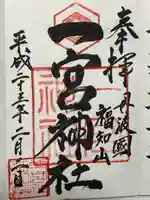 奉拝
丹波國
福知山
一宮神社
平成二十三年二月二日